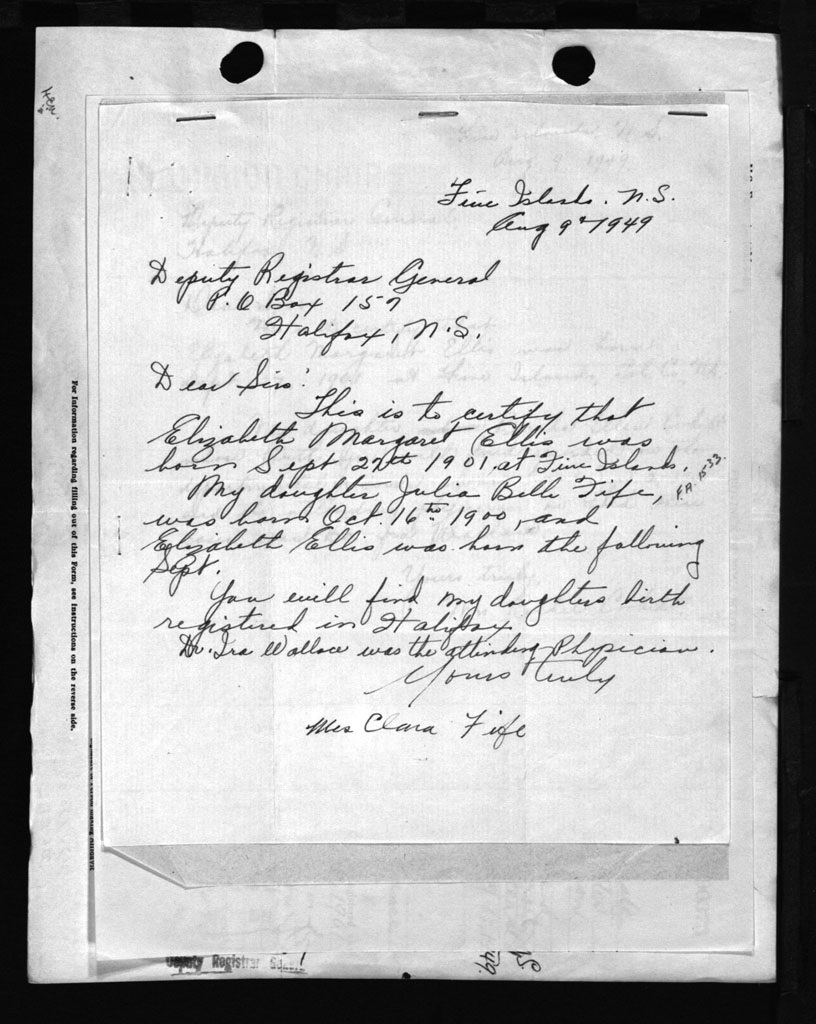 Five Islands. N.S.
Aug 9th 1949
Deputy Registrar General
P.O Box 157
Halifax, N.S.
Dear Sirs:
This is to certify that
Elizabeth Margaret Ellis was
born Sept 27th 1901, at Five Islands.
My daughter, Julia Belle Fife,
was born Oct. 16th 1900, and
Elizabeth Ellis was born the following
Sept.
You will find my daughters birth
registered in Halifax.
Dr. Ira Wallace was the attending Physician.
Yours truly
Mrs Clara Fife
For Information regarding filling out of this Form, see Instructions on the reverse side.
Deputy Registrar